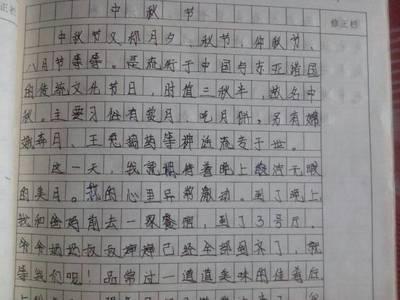 中秋节
中秋节又称月夕、秋节、仲秋节、
八月节等等。是流行于中国与东亚诸国
的传统文化节日,时值三秋半,故名中
秋。主要习俗有赏月、吃月饼,另有嫦
娥奔月、玉兔捣药等神话流传于世。
这一天,我就期待着晚上皎洁无暇
的美月。我的心里异常激动。到了晚上
我和爸妈前去一家餐馆,到了3号厅。
爷爷奶奶叔叔婶婶已经全部到齐了,就
等我们呢!品常过一道道美味的佳肴后
修正栏
正栏